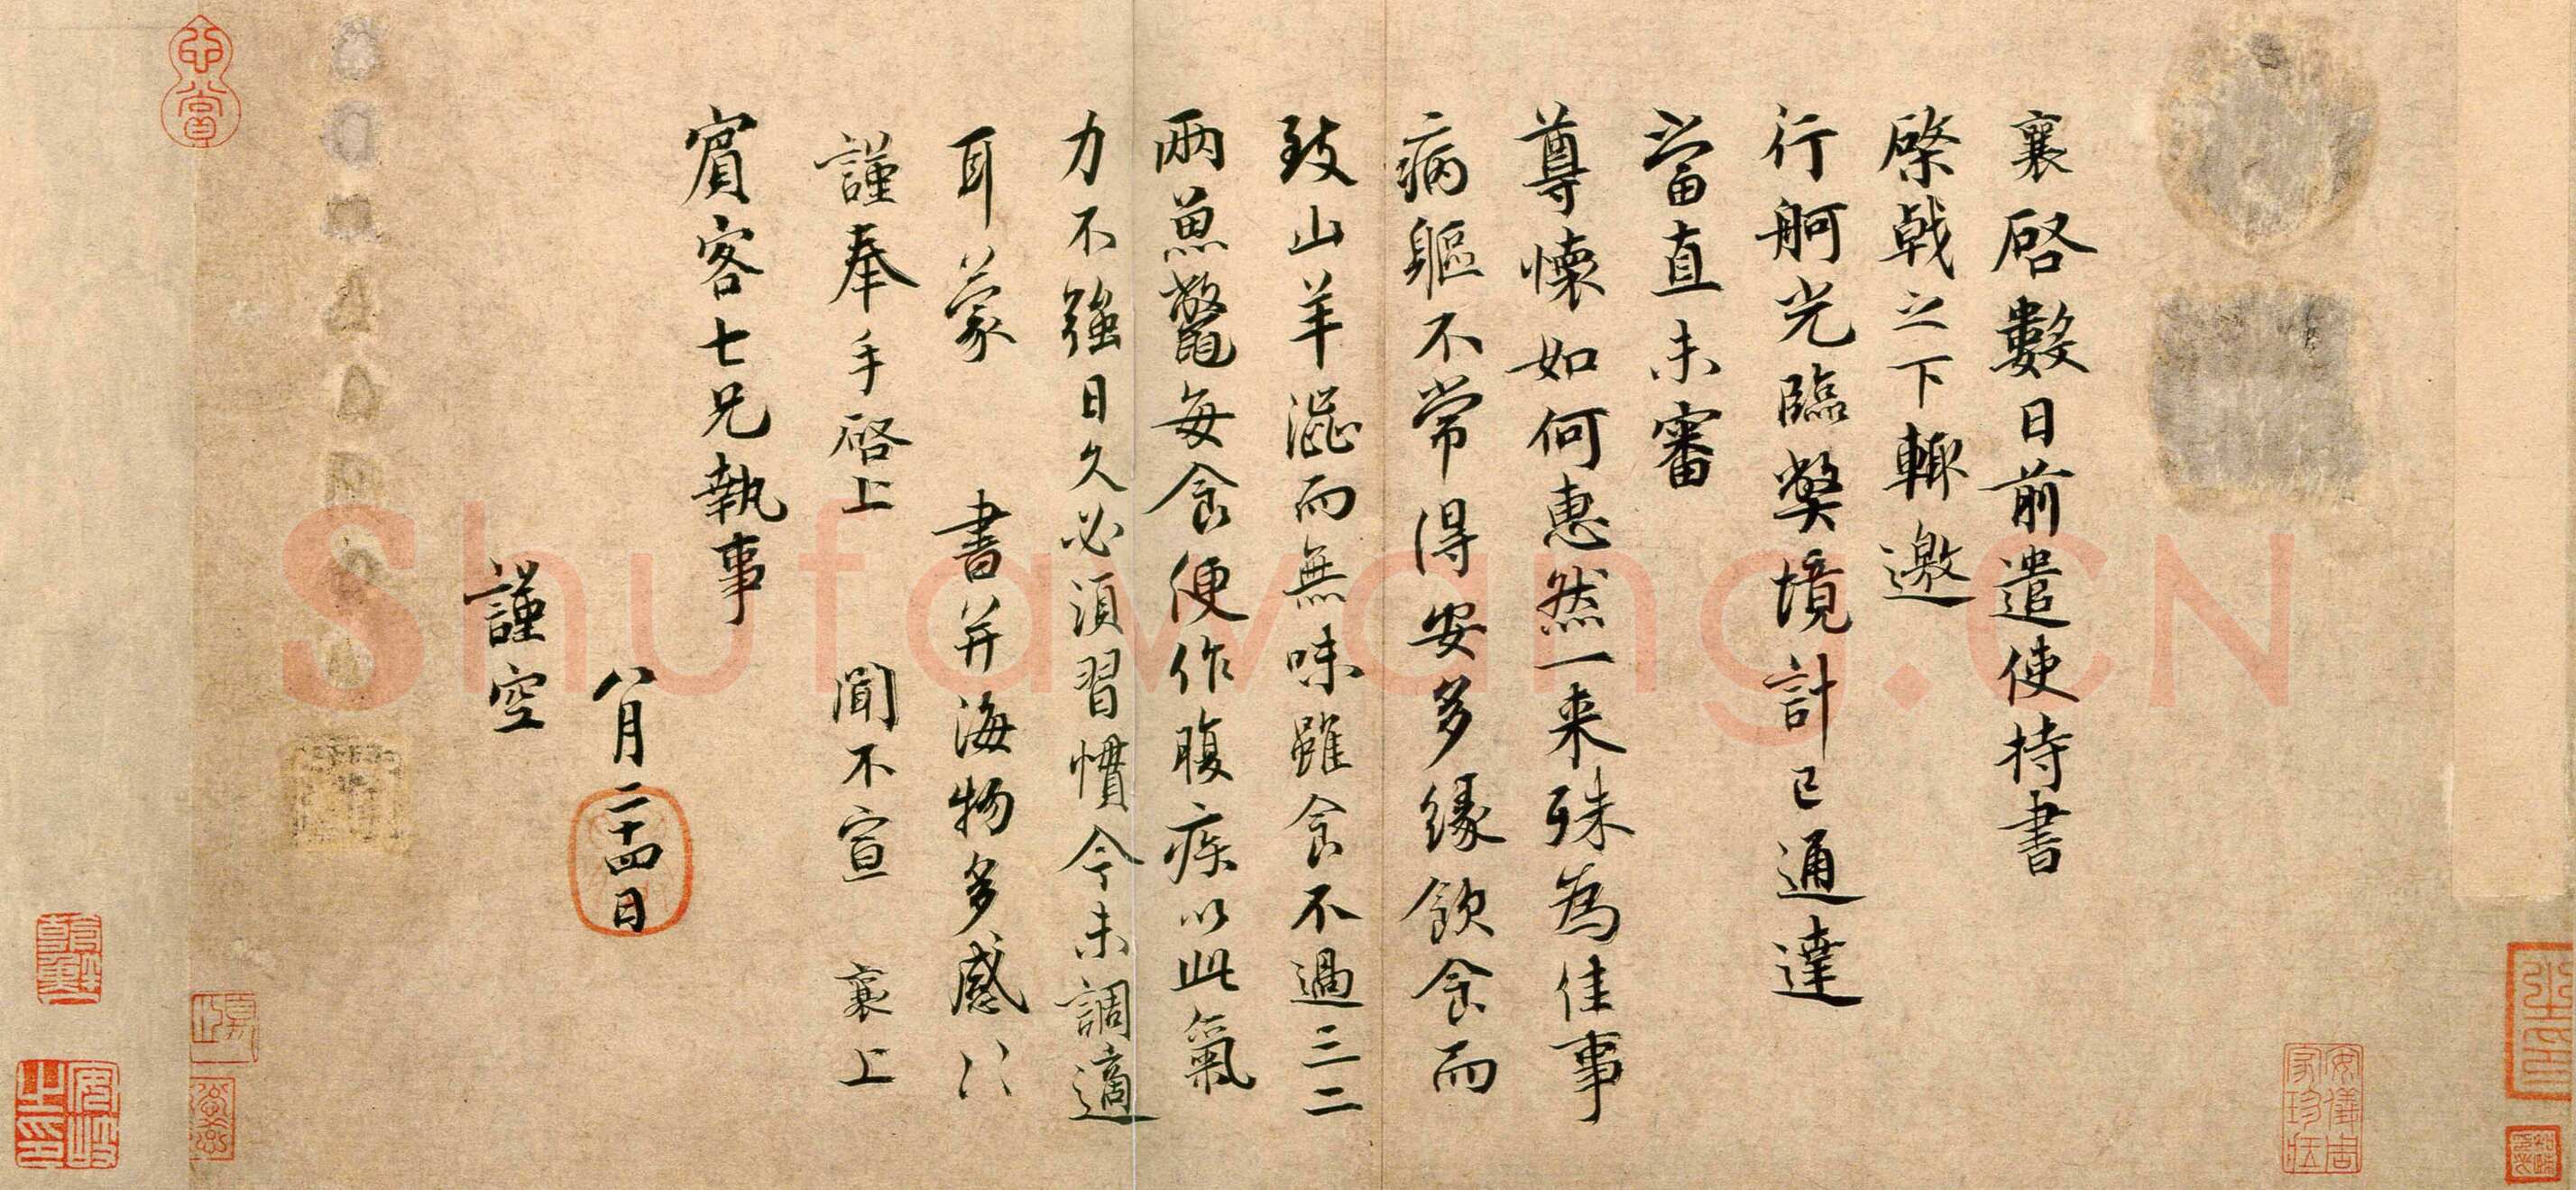 襄啓數日前遣使持書
啟戟之下輙邀
行舸光臨弊境計已通達
當直未審
尊懷如何惠然一来殊為佳事
病軀不常得安多緣飲食而
致山羊澀而無味雖食不過三二
兩魚鼈每食便作腹疾以此氣
力不强日久必須習慣今未調適
耳蒙　書并海物多感〻
謹奉手啓上　聞不宣　襄上
賔客七兄執事
八月二十四日
謹空
Shufawang.CN
安儀周家珍藏